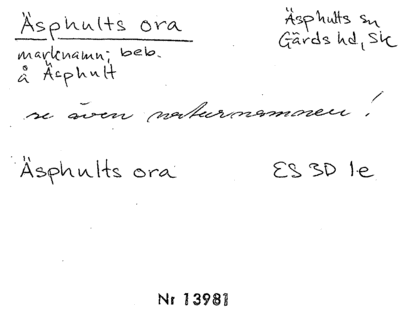 Äsphults ora
Äsphults sn
Gärds hd, Sk
marknamn; beb.
å Äsphult
se även naturnamnen!
Äsphults ora ES 3D 1e
Nr 13981